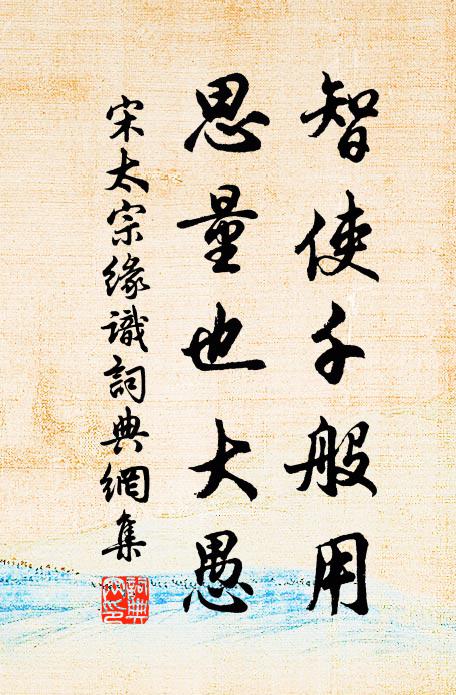 智使千般用
思量也大愚
宋太宗緣識詞典網集
詞典